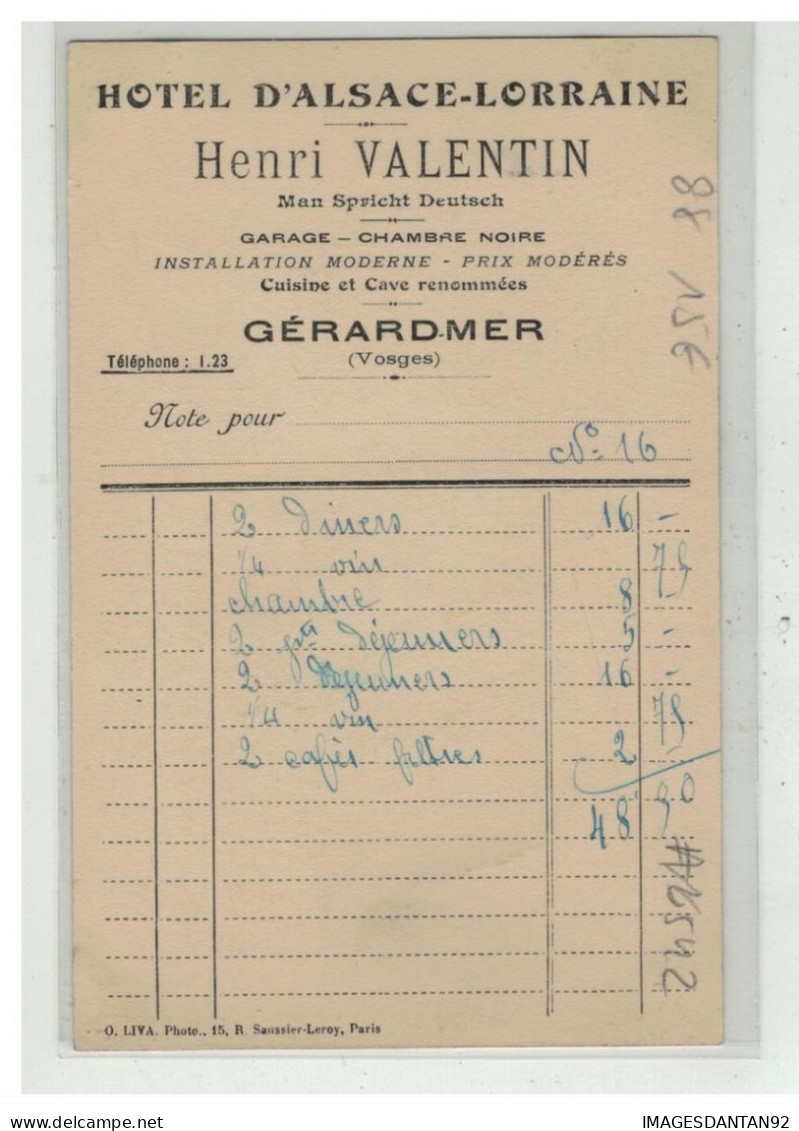 HOTEL D'ALSACE-LORRAINE
Henri VALENTIN
Man Spricht Deutsch
GARAGE – CHAMBRE NOIRE
INSTALLATION MODERNE - PRIX MODÉRÉS
Cuisine et Cave renommées
GÉRARDMER
(Vosges)
Téléphone : 1.23
Note pour
No 16
2 Diners 16 –
1/4 vin 75
chambre 8 –
2 pts Déjeuners 5 –
2 Déjeuners 16 –
1/4 vin 75
2 cafés filtres 2 –
48 50
O. LIVA. Photo., 15, R. Saussier-Leroy, Paris
88 156
A16542
www.delcampe.net
IMAGESDANTAN92